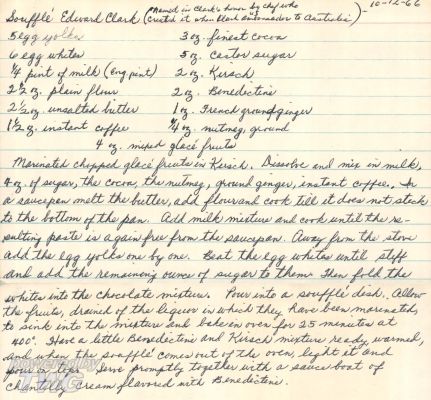 Soufflé Edward Clark (Named in Clark's honor by chef who
created it when Clark ambassador to Australia) 10-12-66
5 egg yolks 3 oz. finest cocoa
6 egg whites 5 oz. castor sugar
¼ pint of milk (eng. pint) 2 oz. Kirsch
2½ oz. plain flour 2 oz. Benedictine
2½ oz. unsalted butter 1 oz. French ground ginger
1½ oz. instant coffee ¼ oz. nutmeg, ground
4 oz. mixed glacé fruits
Marinated chopped glacé fruits in Kirsch. Dissolve and mix in milk,
4 oz. of sugar, the cocoa, the nutmeg, ground ginger, instant coffee. In
a saucepan melt the butter, add flour and cook till it does not stick
to the bottom of the pan. Add milk mixture and cook until the re-
sulting paste is again free from the saucepan. Away from the stove
add the egg yolks one by one. Beat the egg whites until stiff
and add the remaining ounce of sugar to them. Then fold the
whites into the chocolate mixture. Pour into a soufflé dish. Allow
the fruits, drained of the liqueur in which they have been marinated,
to sink into the mixture and bake in oven for 25 minutes at
400°. Have a little Benedictine and Kirsch mixture ready, warmed,
and when the soufflé comes out of the oven, light it and
pour on top. Serve promptly together with a sauce boat of
Chantilly cream flavored with Benedictine.